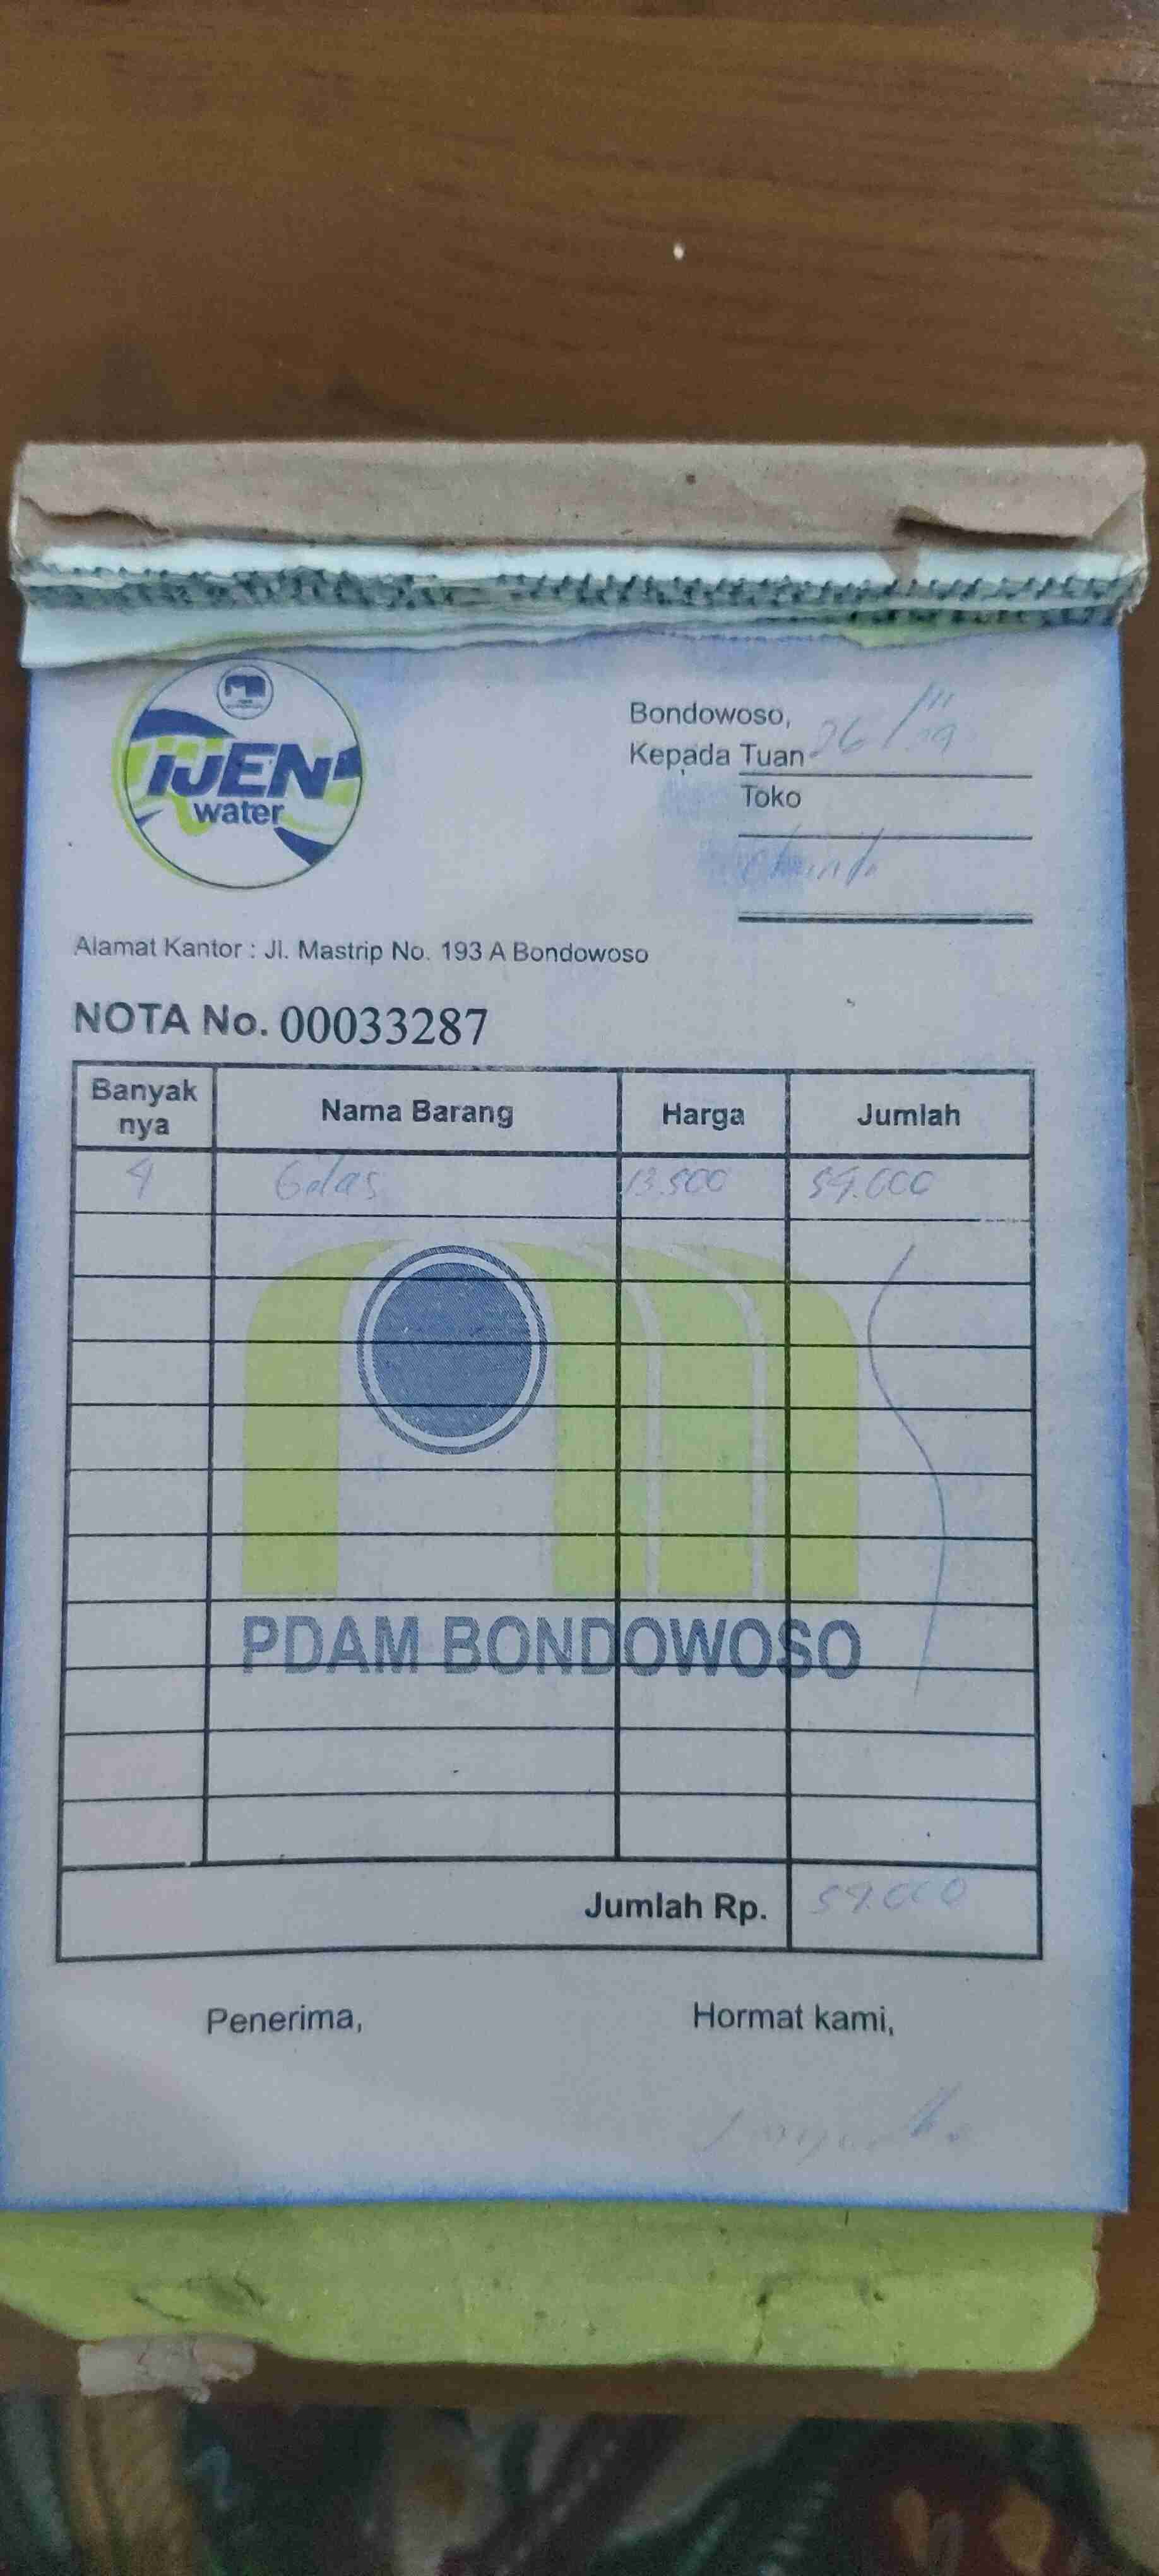 IJEN
water
Bondowoso, 26/11
Kepada Tuan
Toko
Alamat Kantor : Jl. Mastrip No. 193 A Bondowoso
NOTA No. 00033287
Banyak nya Nama Barang Harga Jumlah
4 Gelas 13.500 54.000
PDAM BONDOWOSO
Jumlah Rp. 54.000
Penerima, Hormat kami,